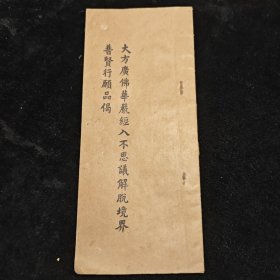 大方廣佛華嚴經入不思議解脫境界
普賢行願品偈